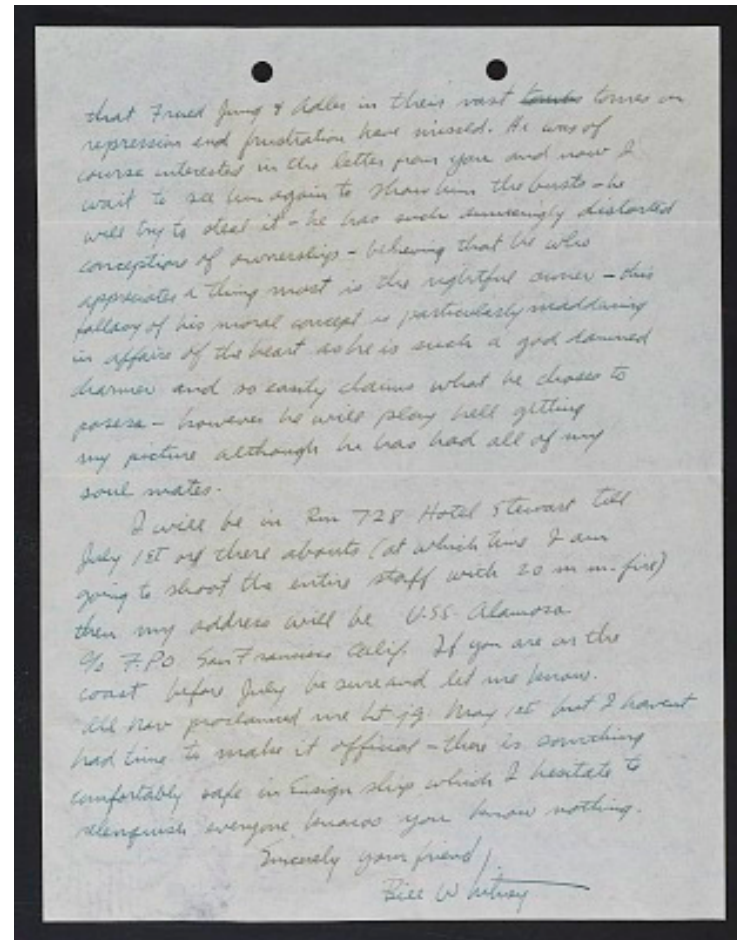 that Frued Jung & Adler in their vast tomes on
repression and frustration have missed. He was of
course interested in the letter from you and now I
wait to see him again to show him the busts - he
will try to steal it - he has such amusingly distorted
conceptions of ownership - believing that he who
appreciates a thing most is the rightful owner - this
fallacy of his moral concept is particularly maddening
in affairs of the heart as he is such a god damned
charmer and so easily claims what he choses to
posess - however he will play hell getting
my picture although he has had all of my
soul mates.
I will be in Rm 728 Hotel Stewart till
July 1st or there abouts (at which time I am
going to shoot the entire staff with 20 m.m. fire)
then my address will be U.S.S. Alamosa
c/o F.P.O. San Francisco Calif. If you are on the
coast before July be sure and let me know.
Nav proclaimed me Lt jg. May 1st but I havent
had time to make it official - there is something
comfortably safe in Ensign ship which I hesitate to
relenquish everyone knows you know nothing.
Sincerely your friend,
Bill Whitney